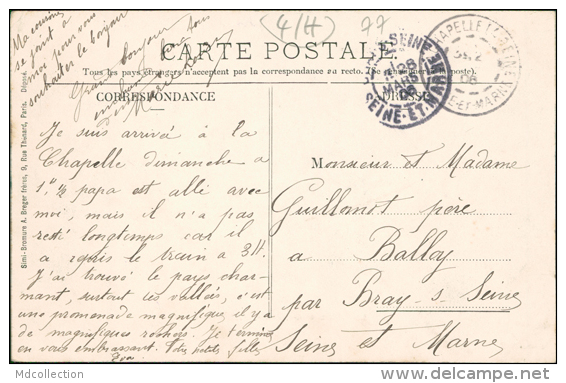 (4/H) 77
Ma cousine
se joint à
moi pour vous
souhaiter le bonjour
bonjour
à tous
CARTE POSTALE.
Tous les pays étrangers n'acceptent pas la correspondance au recto. (Se renseigner à la poste).
CORRESPONDANCE
ADRESSE
CHAPELLE LA
SEINE-ET-MARNE
28
MARS
06
SEINE-ET-MARNE
Simi-Bromure A. Breger frères, 9, Rue Thénard, Paris. Déposé.
Je suis arrivé à la
Chapelle dimanche à
1h ½ papa est allé avec
moi, mais il n'a pas
resté longtemps car il
a repris le train à 3H.
J'ai trouvé le pays char-
mant, surtout les vallées, c'est
une promenade magnifique, il y a
de magnifiques rochers. Je termine
en vous embrassant. Vos petits filles
Monsieur et Madame
Guillomot père
a Balloy
par Bray-s-Seine
Seine et Marne
Mdcollection
delcampe.net